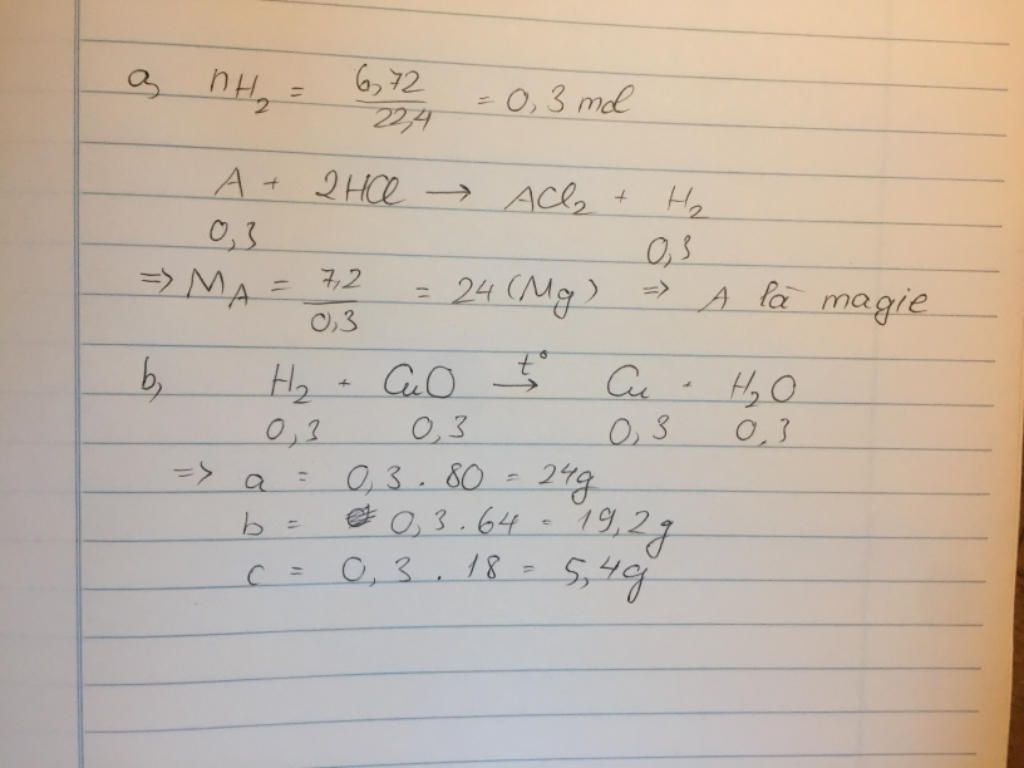 a, nH₂ = 6,72/22,4 = 0,3 mol
A + 2HCl → ACl₂ + H₂
0,3 0,3
=> MA = 7,2/0,3 = 24 (Mg) => A là magie
b, H₂ + CuO t°→ Cu + H₂O
0,3 0,3 0,3 0,3
=> a = 0,3 . 80 = 24g
b = 0,3 . 64 = 19,2g
c = 0,3 . 18 = 5,4g